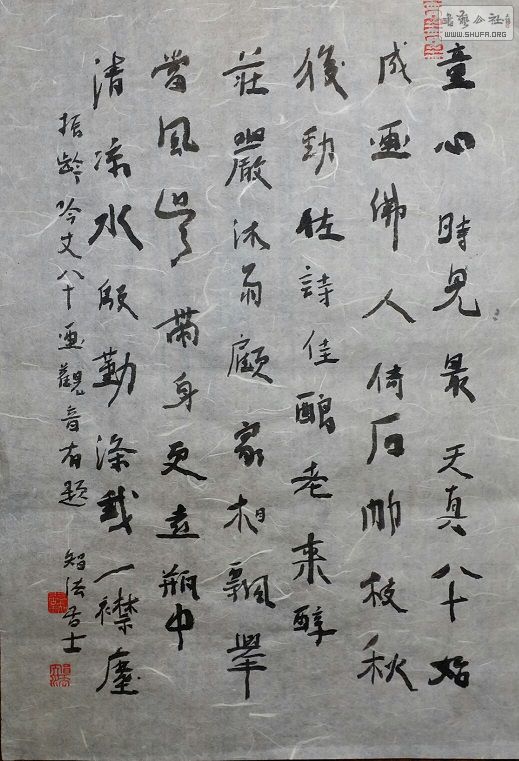 童心時見最天真八十始
成画佛人倚石枝秋
後勁詩佳釀老来醇
莊嚴沐顧家相飄舉
當風帶身更遠瓶中
清凉水殷勤滌我一襟塵
振齡吟丈八十画觀音有題 智法居士
书艺公社
WWW.SHUFA.ORG